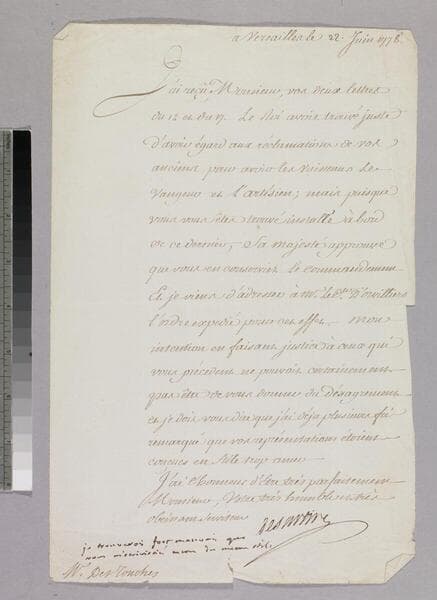 a Versailles le 22. Juin 1778.
J'ai reçu, Monsieur, vos deux lettres
du 15 et du 17. Le Roi avoit trouvé juste
d'avoir égard aux réclamations de vos
anciens pour avoir les vaisseaux le
Vangeur et l'artésien; mais puisque
vous vous êtes trouvé installé à bord
de ce dernier, Sa majesté approuve
que vous en conserviez le commandement
Et je viens d'adresser à M. le Cte. D'orvilliers
l'ordre expédié pour cet effet. Mon
intention en faisant justice à ceux qui
vous précèdent ne pouvoit certainement
pas être de vous donner du désagrément
et je dois vous dire que j'ai déja plusieurs fois
remarqué que vos représentations étoient
concues en stile trop amer.
J'ai l'honneur d'être très parfaitement
Monsieur, Votre très humble et très
obéissant serviteur
desartine
je trouverois fort mauvais que
vous m'écrivissiez encore du meme stile.
Mr. Des Touches